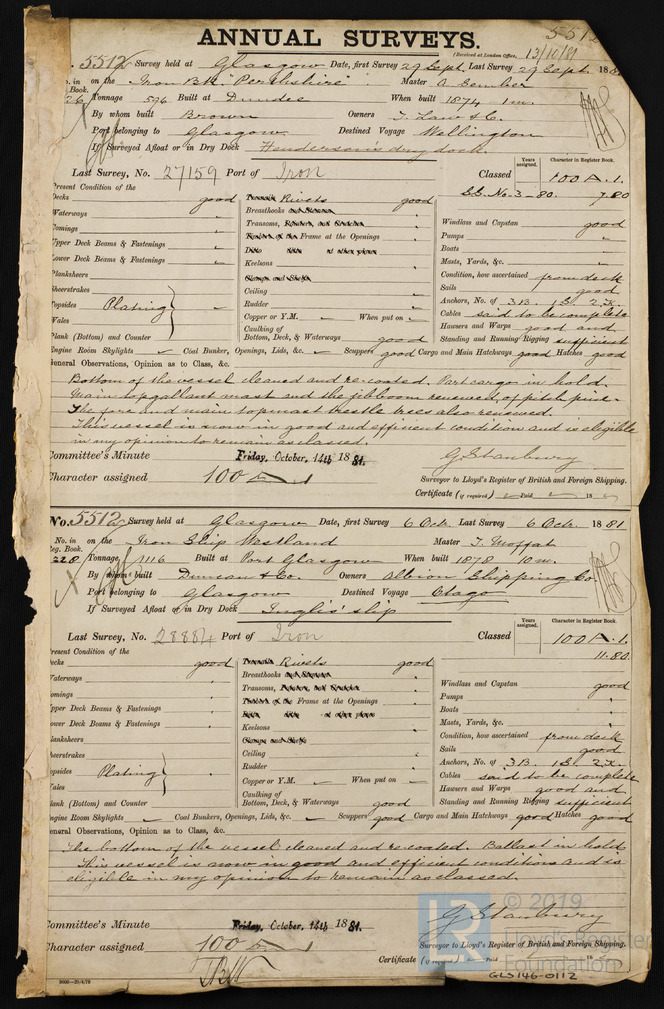 5512
ANNUAL SURVEYS.
(Received at London Office, 13/10/81
No. 5512 Survey held at Glasgow Date, first Survey 29 Sept. Last Survey 29 Sept. 1881
No. in on the Iron Bk "Perthshire" Master A Cember
Reg. Book.
26 Tonnage 596 Built at Dundee When built 1874 1m.
By whom built Brown Owners T. Law & Co.
Port belonging to Glasgow Destined Voyage Wellington
If Surveyed Afloat or in Dry Dock Henderson's dry dock.
Last Survey, No. 27159 Port of Iron
Years assigned. Character in Register Book.
Classed 100 A. 1.
S.S. No. 3 - 80. 7.80
Present Condition of the
Decks good
Waterways "
Comings "
Upper Deck Beams & Fastenings "
Lower Deck Beams & Fastenings "
Planksheers
Sheerstrakes
Topsides Plating "
Wales
Plank (Bottom) and Counter
Rivets good
Breasthooks
Transoms,
Frame at the Openings
Keelsons
Ceiling
Rudder
Copper or Y.M. When put on
Caulking of
Bottom, Deck, & Waterways good
Windlass and Capstan good
Pumps "
Boats "
Masts, Yards, &c. "
Condition, how ascertained from deck
Sails good
Anchors, No. of 3 B. 1 S. 2 K.
Cables said to be complete
Hawsers and Warps good and
Standing and Running Rigging sufficient
Engine Room Skylights Coal Bunker, Openings, Lids, &c. Scuppers good Cargo and Main Hatchways good Hatches good
General Observations, Opinion as to Class, &c.
Bottom of the vessel cleaned and re-coated. Part cargo in hold.
Main topgallant mast and the jibboom renewed of pitch pine.
The fore and main topmast trestle trees also renewed.
This vessel is now in good and efficient condition and is eligible
in my opinion to remain as classed.
Committee's Minute Friday, October, 14th 1881.
Character assigned 100 A 1
G Stanbury
Surveyor to Lloyd's Register of British and Foreign Shipping.
Certificate (if required) Paid 18
No. 5512 Survey held at Glasgow Date, first Survey 6 Oct. Last Survey 6 Oct. 1881
No. in on the Iron Ship Westland Master T. Moffat
Reg. Book.
228 Tonnage 1116 Built at Port Glasgow When built 1878 10m.
By whom built Duncan & Co. Owners Albion Shipping Co
Port belonging to Glasgow Destined Voyage Otago
If Surveyed Afloat or in Dry Dock Inglis' slip
Last Survey, No. 28884 Port of Iron
Years assigned. Character in Register Book.
Classed 100 A. 1.
11.80.
Present Condition of the
Decks good
Waterways "
Comings "
Upper Deck Beams & Fastenings "
Lower Deck Beams & Fastenings "
Planksheers
Sheerstrakes
Topsides Plating "
Wales
Plank (Bottom) and Counter
Rivets good
Breasthooks
Transoms,
Frame at the Openings
Keelsons
Ceiling
Rudder
Copper or Y.M. When put on
Caulking of
Bottom, Deck, & Waterways good
Windlass and Capstan good
Pumps "
Boats "
Masts, Yards, &c. "
Condition, how ascertained from deck
Sails good
Anchors, No. of 3 B. 1 S. 2 K.
Cables said to be complete
Hawsers and Warps good and
Standing and Running Rigging sufficient
Engine Room Skylights Coal Bunkers, Openings, Lids, &c. Scuppers good Cargo and Main Hatchways good Hatches good
General Observations, Opinion as to Class, &c.
The bottom of the vessel cleaned and re-coated. Ballast in hold.
This vessel is now in good and efficient condition and is
eligible in my opinion to remain as classed.
Committee's Minute Friday, October, 14th 1881.
Character assigned 100 A 1
G Stanbury
Surveyor to Lloyd's Register of British and Foreign Shipping.
Certificate (if required) Paid 18
LR © 2019
Lloyd's Register
Foundation
GLS146-0112